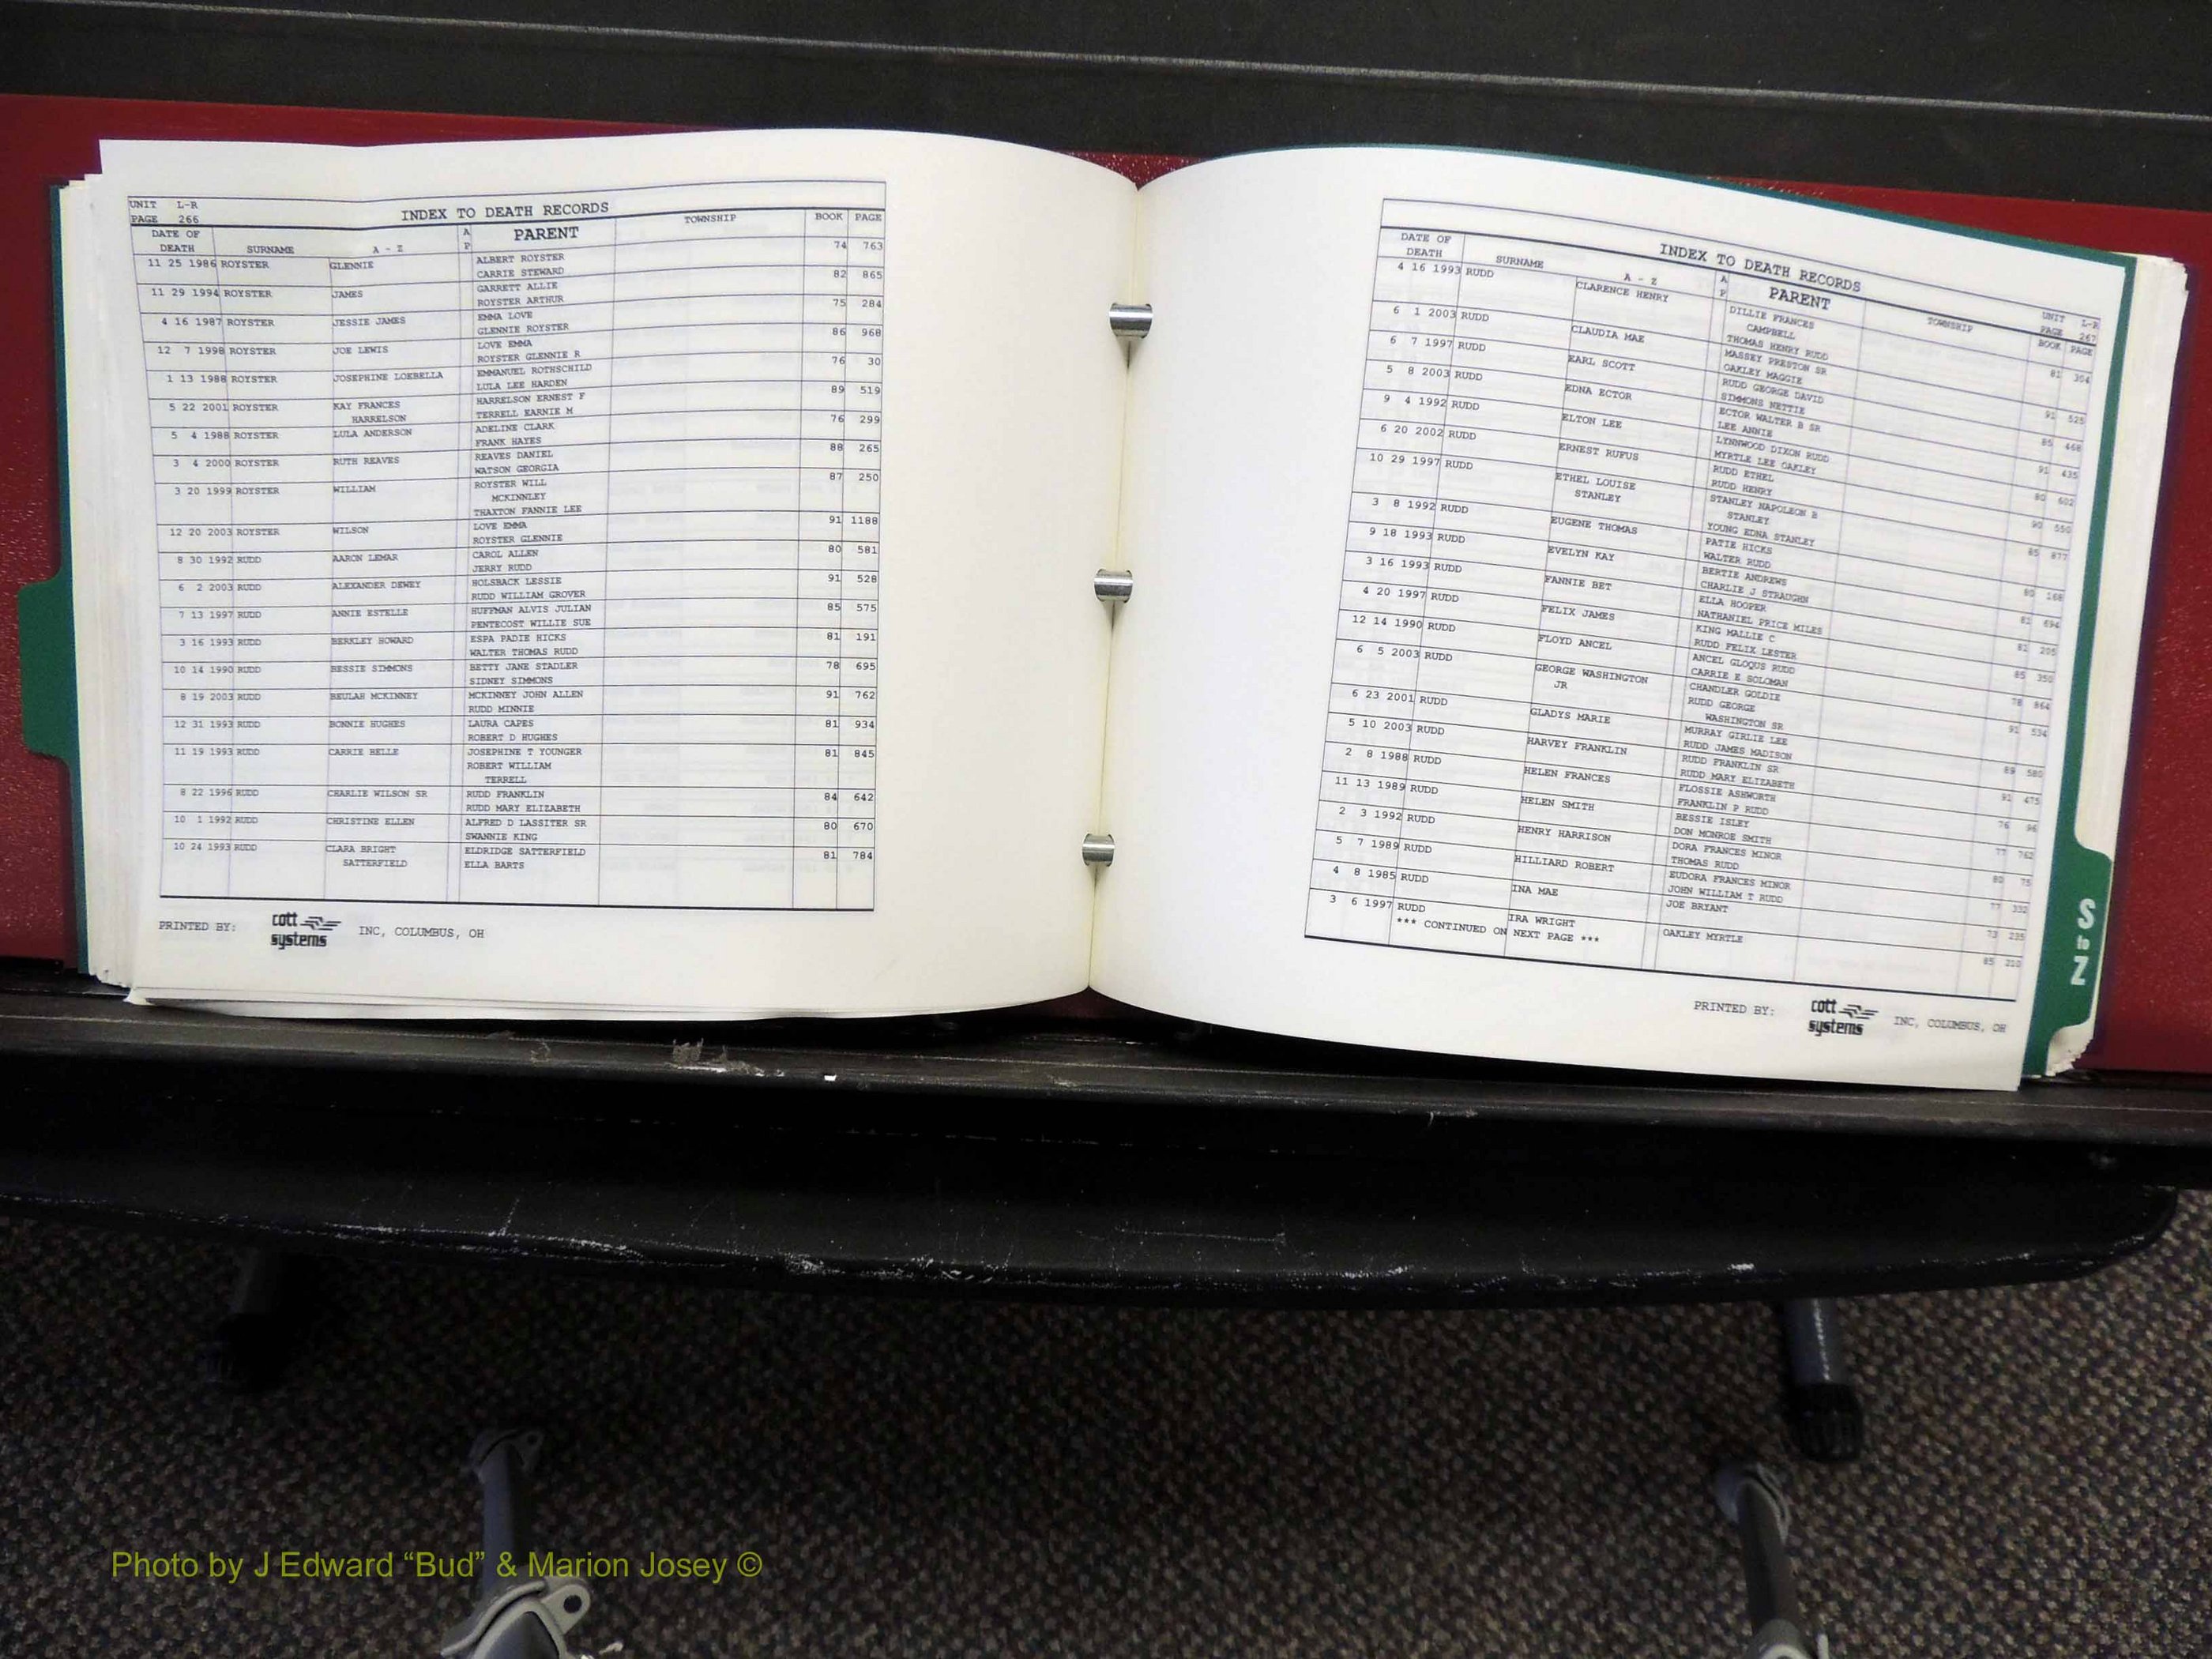 UNIT L-R
PAGE 266
INDEX TO DEATH RECORDS
DATE OF DEATH SURNAME A - Z A P PARENT TOWNSHIP BOOK PAGE
11 25 1986 ROYSTER GLENNIE ALBERT ROYSTER 74 763
CARRIE STEWARD
11 29 1994 ROYSTER JAMES GARRETT ALLIE 82 865
ROYSTER ARTHUR
4 16 1987 ROYSTER JESSIE JAMES EMMA LOVE 75 284
GLENNIE ROYSTER
12 7 1998 ROYSTER JOE LEWIS LOVE EMMA 86 968
ROYSTER GLENNIE R
1 13 1988 ROYSTER JOSEPHINE LOEBELLA EMMANUEL ROTHSCHILD 76 30
LULA LEE HARDEN
5 22 2001 ROYSTER KAY FRANCES HARRELSON ERNEST F 89 519
HARRELSON TERRELL EARNIE M
5 4 1988 ROYSTER LULA ANDERSON ADELINE CLARK 76 299
FRANK HAYES
3 4 2000 ROYSTER RUTH REAVES REAVES DANIEL 88 265
WATSON GEORGIA
3 20 1999 ROYSTER WILLIAM ROYSTER WILL 87 250
MCKINNLEY
THAXTON FANNIE LEE
12 20 2003 ROYSTER WILSON LOVE EMMA 91 1188
ROYSTER GLENNIE
8 30 1992 RUDD AARON LEMAR CAROL ALLEN 80 581
JERRY RUDD
6 2 2003 RUDD ALEXANDER DEWEY HOLSBACK LESSIE 91 528
RUDD WILLIAM GROVER
7 13 1997 RUDD ANNIE ESTELLE HUFFMAN ALVIS JULIAN 85 575
PENTECOST WILLIE SUE
3 16 1993 RUDD BERKLEY HOWARD ESPA PADIE HICKS 81 191
WALTER THOMAS RUDD
10 14 1990 RUDD BESSIE SIMMONS BETTY JANE STADLER 78 695
SIDNEY SIMMONS
8 19 2003 RUDD BEULAH MCKINNEY MCKINNEY JOHN ALLEN 91 762
RUDD MINNIE
12 31 1993 RUDD BONNIE HUGHES LAURA CAPES 81 934
ROBERT D HUGHES
11 19 1993 RUDD CARRIE BELLE JOSEPHINE T YOUNGER 81 845
ROBERT WILLIAM
TERRELL
8 22 1996 RUDD CHARLIE WILSON SR RUDD FRANKLIN 84 642
RUDD MARY ELIZABETH
10 1 1992 RUDD CHRISTINE ELLEN ALFRED D LASSITER SR 80 670
SWANNIE KING
10 24 1993 RUDD CLARA BRIGHT ELDRIDGE SATTERFIELD 81 784
SATTERFIELD ELLA BARTS
PRINTED BY: cott systems INC, COLUMBUS, OH
INDEX TO DEATH RECORDS
UNIT L-R
PAGE 267
DATE OF DEATH SURNAME A - Z A P PARENT TOWNSHIP BOOK PAGE
4 16 1993 RUDD CLARENCE HENRY DILLIE FRANCES 81 304
CAMPBELL
THOMAS HENRY RUDD
6 1 2003 RUDD CLAUDIA MAE MASSEY PRESTON SR 91 525
OAKLEY MAGGIE
6 7 1997 RUDD EARL SCOTT RUDD GEORGE DAVID 85 468
SIMMONS NETTIE
5 8 2003 RUDD EDNA ECTOR ECTOR WALTER B SR 91 435
LEE ANNIE
9 4 1992 RUDD ELTON LEE LYNNWOOD DIXON RUDD 80 602
MYRTLE LEE OAKLEY
6 20 2002 RUDD ERNEST RUFUS RUDD ETHEL 90 550
RUDD HENRY
10 29 1997 RUDD ETHEL LOUISE STANLEY NAPOLEON B 85 877
STANLEY STANLEY
YOUNG EDNA STANLEY
3 8 1992 RUDD EUGENE THOMAS PATIE HICKS 80 168
WALTER RUDD
9 18 1993 RUDD EVELYN KAY BERTIE ANDREWS 81 694
CHARLIE J STRAUGHN
3 16 1993 RUDD FANNIE BET ELLA HOOPER 81 205
NATHANIEL PRICE MILES
4 20 1997 RUDD FELIX JAMES KING MALLIE C 85 350
RUDD FELIX LESTER
12 14 1990 RUDD FLOYD ANCEL ANCEL GLOQUS RUDD 78 864
CARRIE E SOLOMAN
6 5 2003 RUDD GEORGE WASHINGTON CHANDLER GOLDIE 91 534
JR RUDD GEORGE
WASHINGTON SR
6 23 2001 RUDD GLADYS MARIE MURRAY GIRLIE LEE 89 580
RUDD JAMES MADISON
5 10 2003 RUDD HARVEY FRANKLIN RUDD FRANKLIN SR 91 475
RUDD MARY ELIZABETH
2 8 1988 RUDD HELEN FRANCES FLOSSIE ASHWORTH 76 96
FRANKLIN P RUDD
11 13 1989 RUDD HELEN SMITH BESSIE ISLEY 77 762
DON MONROE SMITH
2 3 1992 RUDD HENRY HARRISON DORA FRANCES MINOR 80 75
THOMAS RUDD
5 7 1989 RUDD HILLIARD ROBERT EUDORA FRANCES MINOR 77 332
JOHN WILLIAM T RUDD
4 8 1985 RUDD INA MAE JOE BRYANT 73 235
3 6 1997 RUDD IRA WRIGHT OAKLEY MYRTLE 85 210
*** CONTINUED ON NEXT PAGE ***
PRINTED BY: cott systems INC, COLUMBUS, OH
S to Z
Photo by J Edward “Bud” & Marion Josey ©